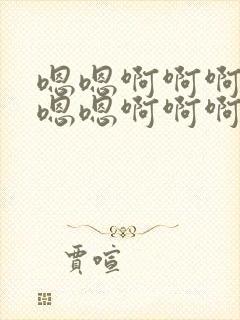 嗯嗯啊啊啊
嗯嗯啊啊啊
贾喧